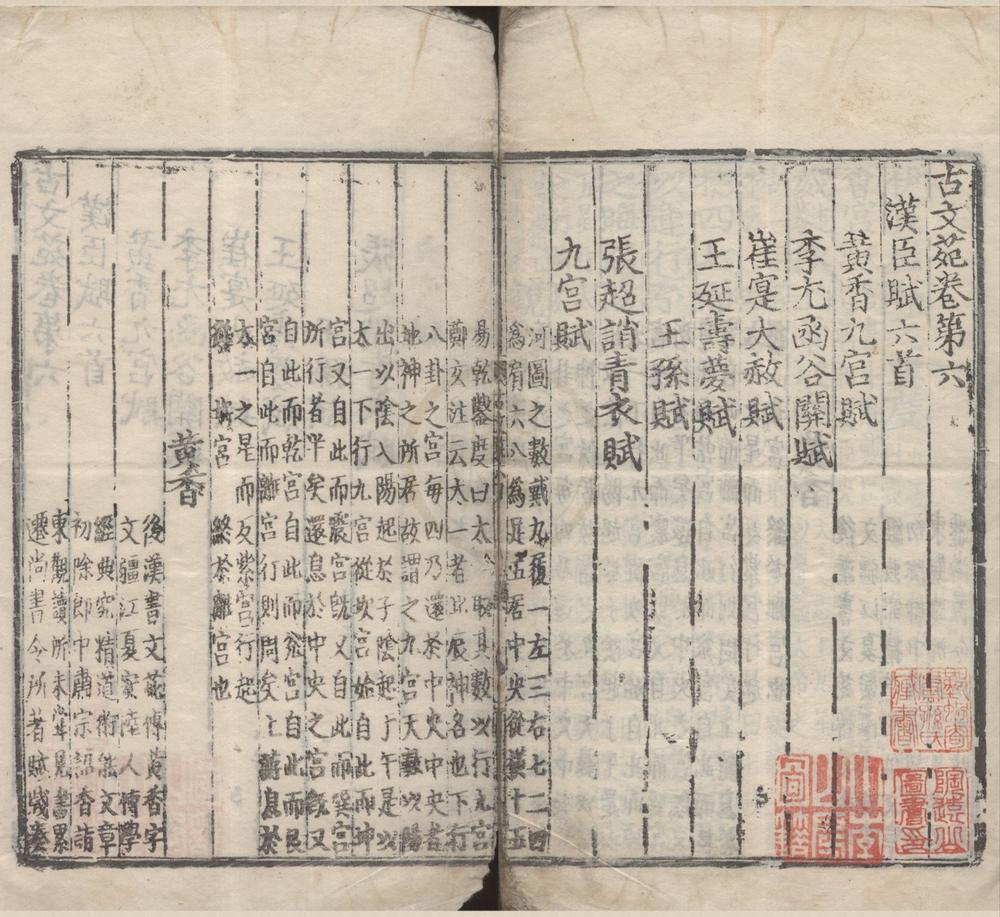 古文苑卷第六
漢臣賦六首
黃香九宮賦
李尤函谷關賦
崔寔大赦賦
王延壽夢賦
王孫賦
張超誚青衣賦
九宮賦
河圖之數戴九履一左三右七二四
爲肩六八爲足五居中央從橫十五
易乾鑿度曰太一取其數以行九宮
鄭玄注云太一者北辰神名也下行
八卦之宮每四乃還於中央中央者
地神之所居故謂之九宮天數以陽
出以陰入陽起於子陰起于午是以
太一下行九宮從坎宮始自此而坤
宮又自此而震宮既又自此而巽宮
所行者半矣還息於中央之宮既又
自此而乾宮自此而兊宮自此而艮
宮自此而離宮行則周矣上游息於
太一之星而反紫宮行起
坎宮終於離宮也
黃香
後漢書文苑傳黃香字
文彊江夏安陸人博學
經典究精道術能文章
初除郎中肅宗詔香詣
東觀讀所未嘗見書累
遷尚書令所著賦牋奏